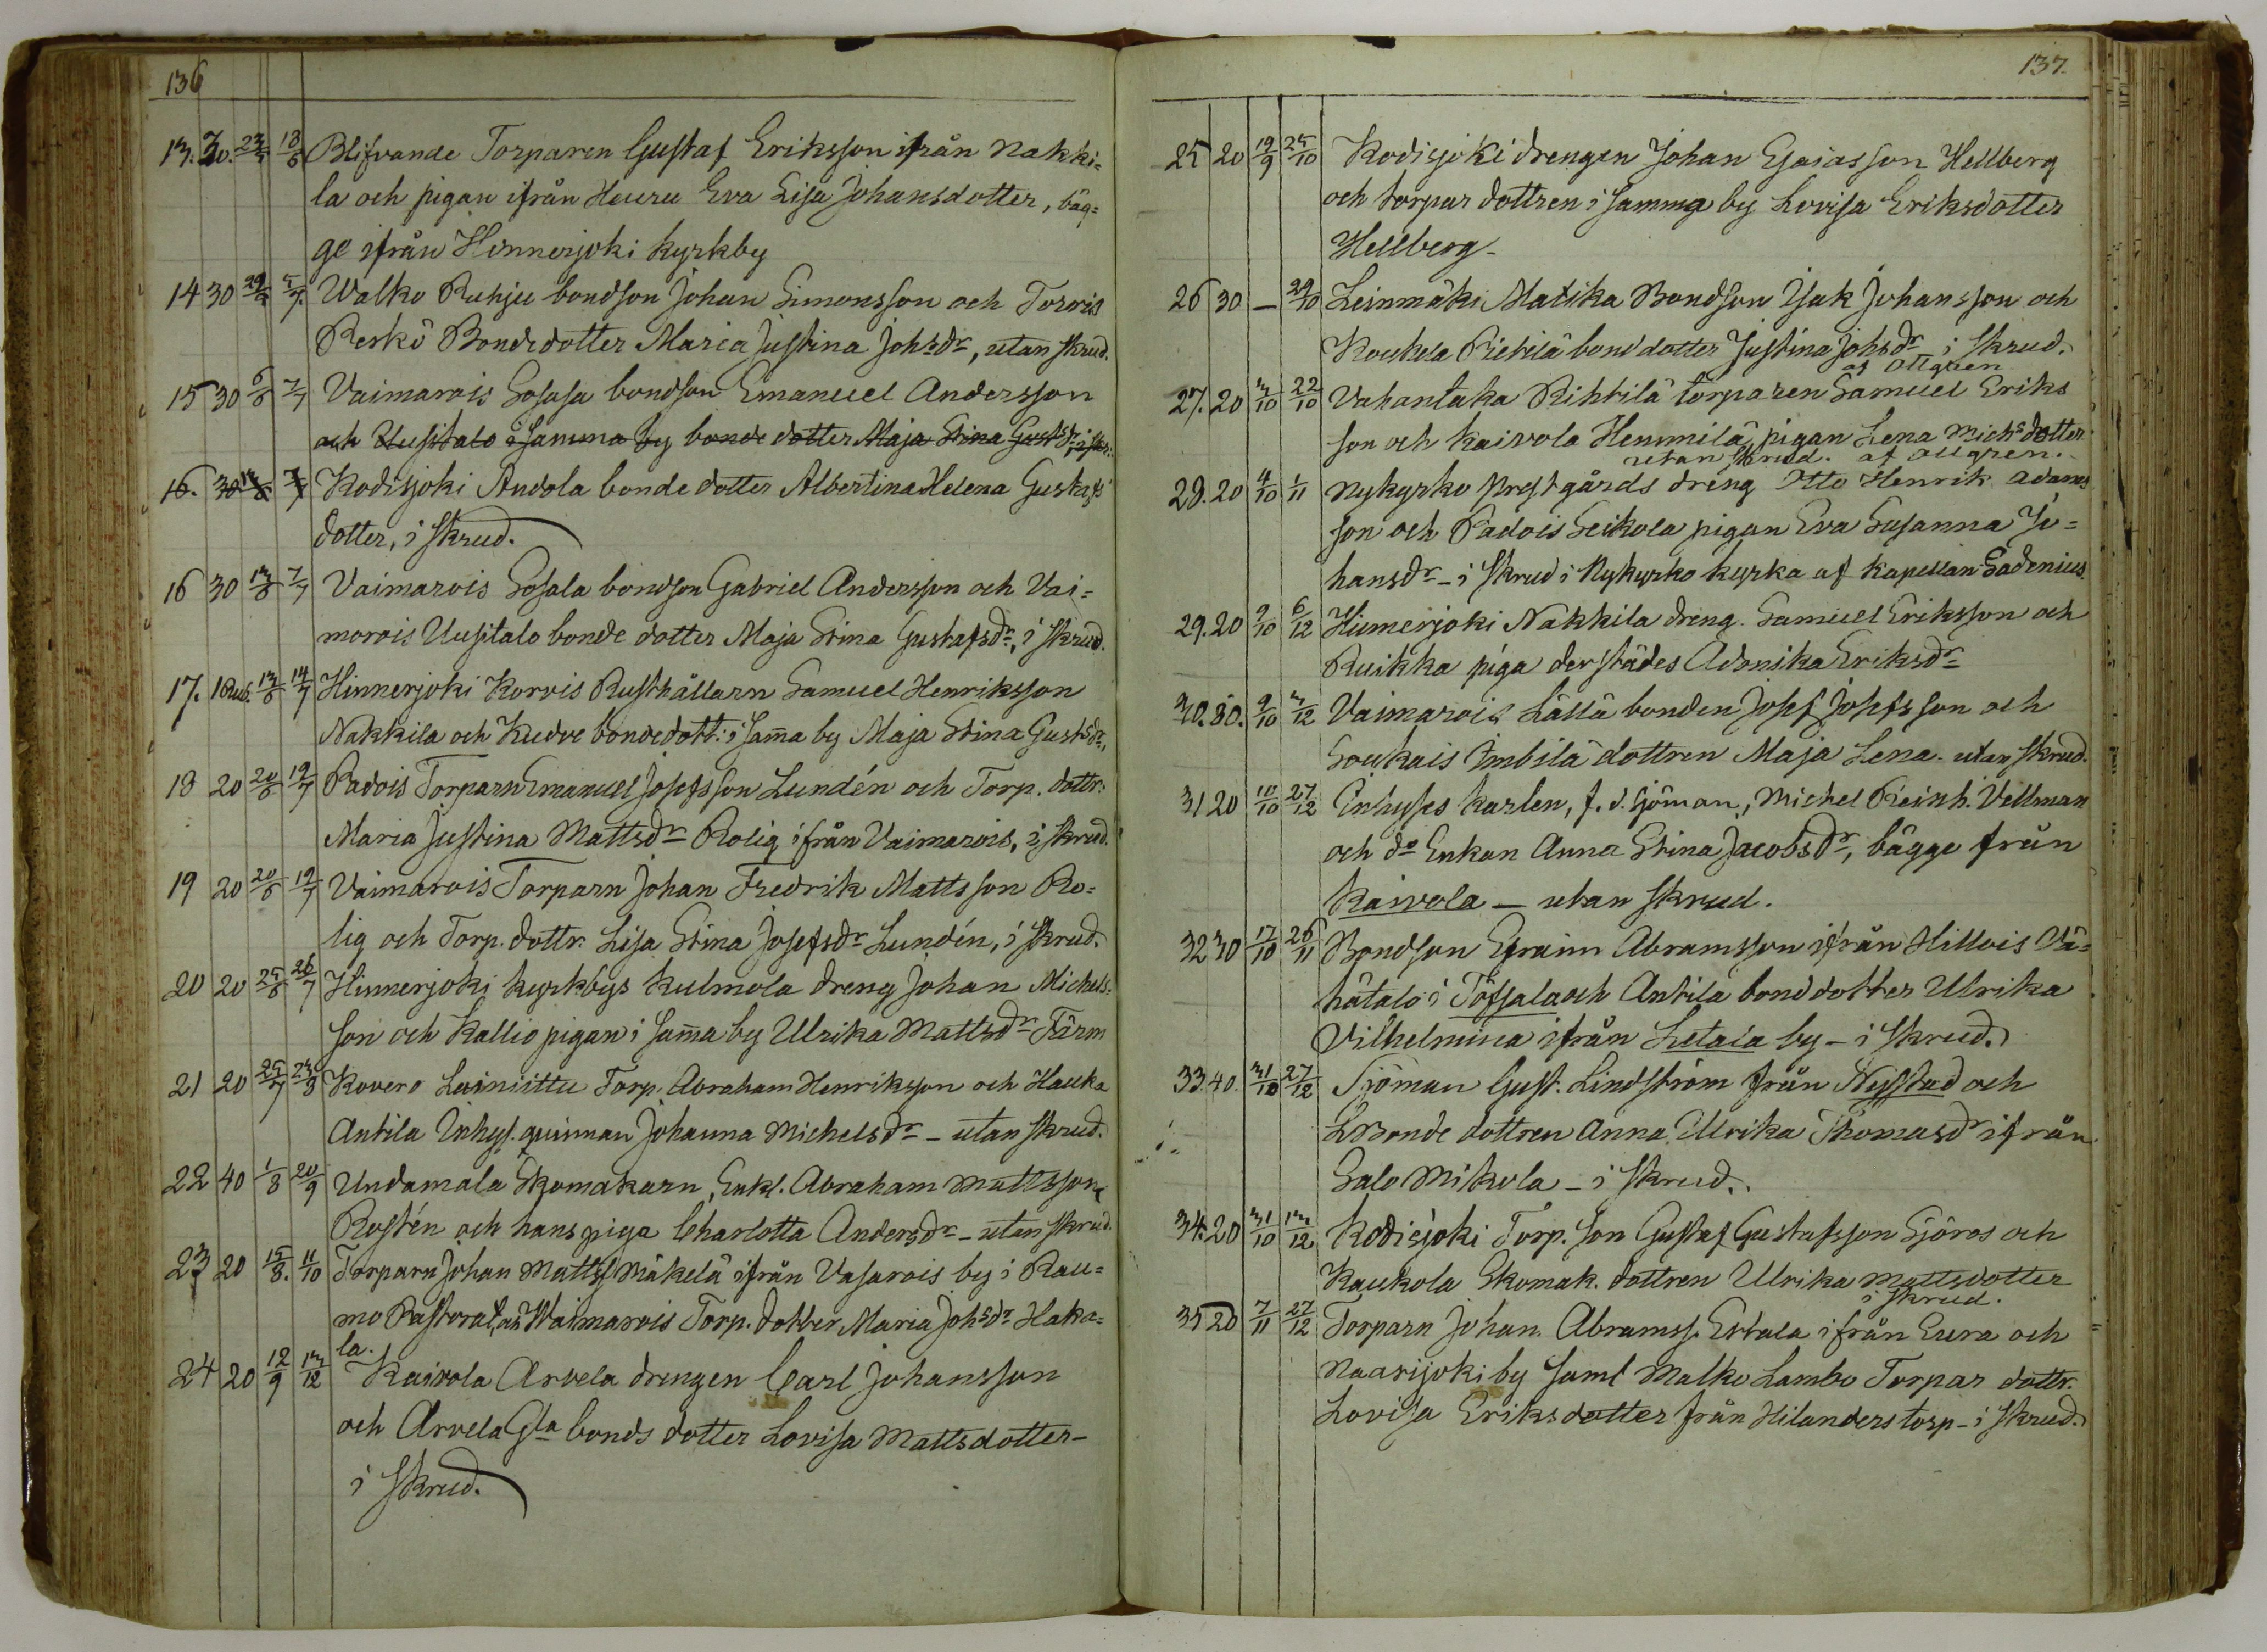 136
13. 30. 23/5 13/6 Blifvande Torparen Gustaf Eriksson ifrån Nakki-
la och pigan ifrån Heuru Eva Lisa Johansdotter, bäg-
ge ifrån Hinnerjoki kyrkby
14 30 5/7 Walko Ruhju bondson Johan Simonsson och Torvis
Reskö Bondedotter Maria Justina Johsdr, utan skrud.
15 30 6/6 7/7 Vaimarois Sosasa bondson Emanuel Andersson
och Uusitalo i samma by bonde dotter Maja Stina Gustsdr
16. 30 13/6 7/7 Kodisjoki Andola bonde dotter Albertina Helena Gustafs
dotter, i skrud.
16 30 13/6 7/7 Vaimarois Sosala bondson Gabriel Andersson och Vai-
marois Uusitalo bonde dotter Maja Stina Gustafsdr, i skrud.
17. 1 Rub. 13/6 14/7 Hinnerjoki Korvis Rusthållarn Samuel Henriksson
Nakkila och Kudve bondedott. i samma by Maja Stina Gustsdr,
18 20 20/6 19/7 Radois Torparn Emanuel Josefsson Lundén och Torp. dottr.
Maria Justina Mattsdr Rolig ifrån Vaimarois, i skrud.
19 20 20/6 19/7 Vaimarois Torparn Johan Fredrik Mattsson Ro-
lig och Torp. dottr. Lisa Stina Josefsdr Lundén, i skrud.
20 20 25/6 26/7 Hinnerjoki kyrkbys Kulmola dreng Johan Michels-
son och Kallio pigan i samma by Ulrika Mattsdr Färm
21 20 25/7 23/8 Kovero Lainiittu Torp. Abraham Henriksson och Hauka
Antila Inhys. quinnan Johanna Michelsdr - utan skrud.
22 40 1/8 20/9 Undamala Skomakarn, Enkl. Abraham Mattsson
Rostén och hans piga Charlotta Andersdr - utan skrud.
23 20 15/8. 11/10 Torparn Johan Matts Mäkelä ifrån Vasarois by i Rau-
mo Pastorat, och Waimarois Torp. dotter Maria Johsdr Haka-
la.
24 20 12/9 13/12 Kaivola Arvela drengen Carl Johansson
och Arvela Gla bonds dotter Lovisa Mattsdotter-
i skrud.
137.
25 20 19/9 25/10 Kodisjoki drengen Johan Esaiasson Hellberg
och torpar dottren i samma by Lovisa Eriksdotter
Hellberg-
26 30 - 29/10 Leinmäki Matika Bondson Isak Johansson och
Koukela Pietilä bond dotter Justina Johsdr i skrud.
af Allgren
27. 20 3/10 22/10 Vahantaka Rihtilä torparen Samuel Eriks
son och Kaivola Hemmilä, pigan Lena Michsdotter
utan skrud. af Allgren.
28. 20 4/10 1/11 Nykyrko prestgårds dreng Otto Henrik Adams
son och Padois Seikola pigan Eva Susanna Jo-
hansdr - i skrud i Nykyrko kyrka af Kapellan Sadenius
29. 20 9/10 6/12 Hinnerjoki Nakkila dreng. Samuel Eriksson och
Ruikka piga derstädes Adonika Eriksdr
30. 80. 9/10 3/12 Vaimarois Lällä bonden Josef Josefsson och
Soukais Imbilä dottren Maja Lena. utan skrud.
31 20 10/10 27/12 Inhyses karlen, f. d. Sjöman, Michel Reinh. Vellman
och do Enkan Anna Stina Jacobsdr, bägge från
Kaivola - utan skrud.
32 30 17/10 26/11 Bondson Efraim Abramsson ifrån Hillois Vä-
hätalo i Töfsala och Antila bonddotter Ulrika
Vilhelmina ifrån Letaia by - i skrud.
33. 40. 31/10 27/12 Sjöman Gust. Lindström från Nystad och
Bonde dottren Anna Ulrika Thomasdr ifrån
Salo Mikola - i skrud.
34. 20 31/10 13/12 Kodisjoki Torp. son Gustaf Gustafsson Sjöros och
Kaukola Skomak. dottren Ulrika Mattsdotter
i skrud.
35 20 7/11 27/12 Torparn Johan Abramss. Ertala ifrån Eura och
Naarijoki by samt Malko Lambo Torpar dottr.
Lovisa Eriksdotter från Hilanders torp - i skrud.